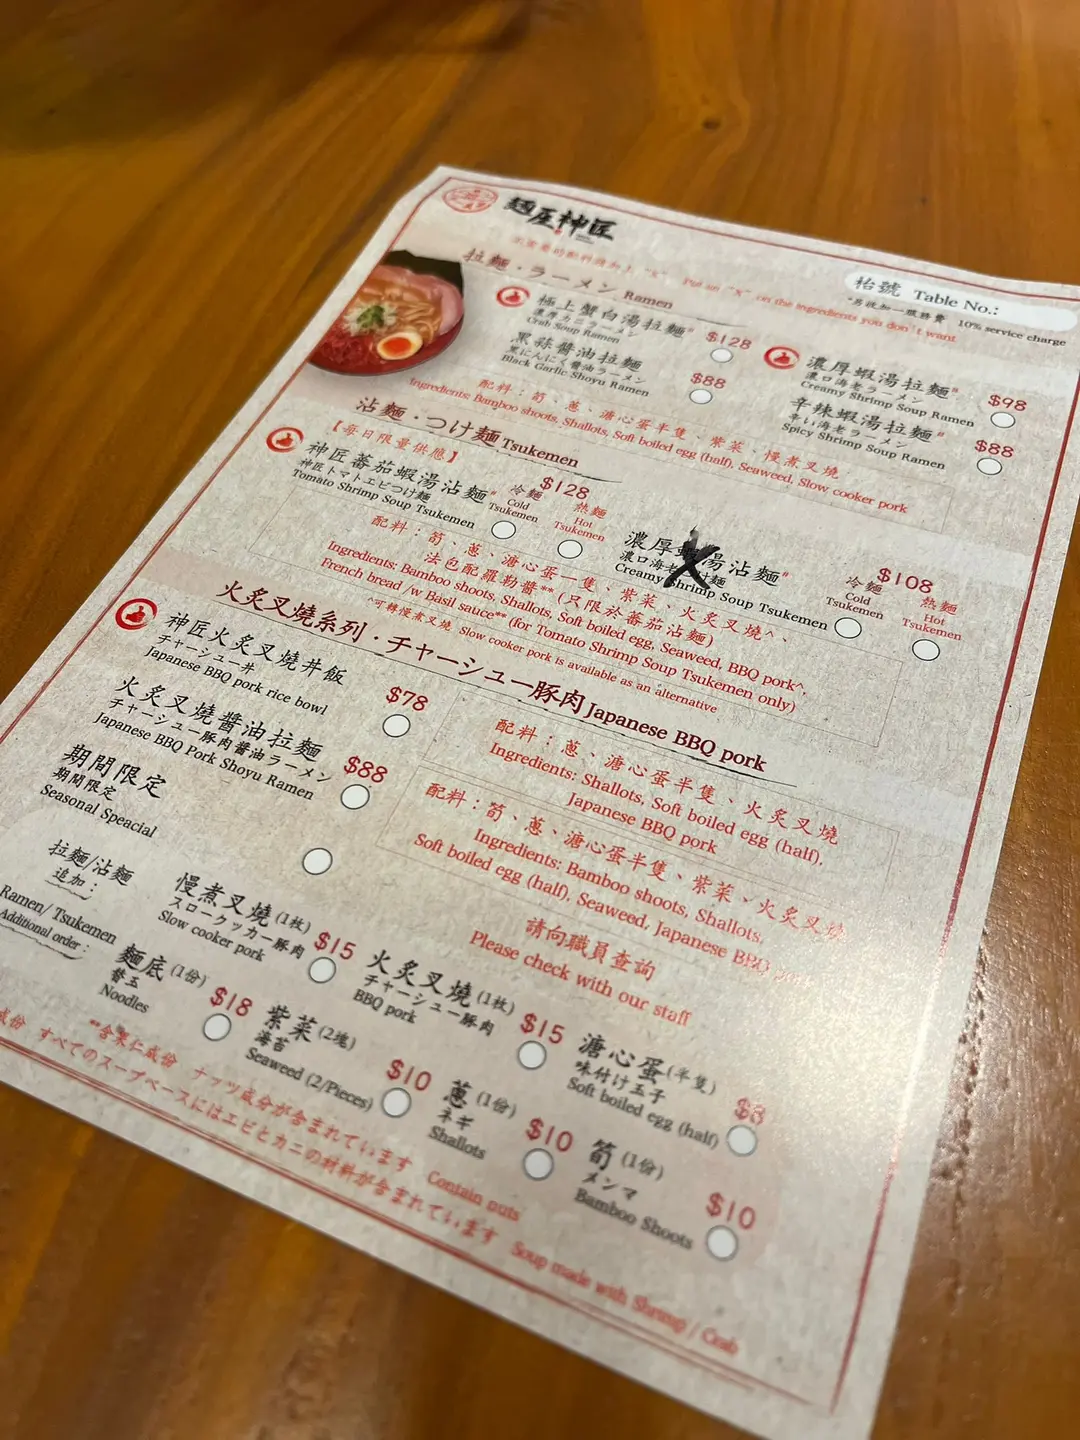 麵屋神匠
不需要的配料請加上 "X" Put an "X" on the ingredients you don't want
枱號 Table No.:
*另收加一服務費 10% service charge
拉麵・ラーメン Ramen
極上蟹白湯拉麵# $128
濃厚カニラーメン
Crab Soup Ramen
黑蒜醬油拉麵 $88
黒にんにく醬油ラーメン
Black Garlic Shoyu Ramen
濃厚蝦湯拉麵# $98
濃口海老ラーメン
Creamy Shrimp Soup Ramen
辛辣蝦湯拉麵# $88
辛い海老ラーメン
Spicy Shrimp Soup Ramen
配料：筍、蔥、溏心蛋半隻、紫菜、慢煮叉燒
Ingredients: Bamboo shoots, Shallots, Soft boiled egg (half), Seaweed, Slow cooker pork
沾麵・つけ麵 Tsukemen
【每日限量供應】
神匠蕃茄蝦湯沾麵# $128
神匠トマトエビつけ麵
Tomato Shrimp Soup Tsukemen
冷麵 熱麵
Cold Tsukemen Hot Tsukemen
濃厚蝦湯沾麵# $108
濃口海老つけ麵
Creamy Shrimp Soup Tsukemen
冷麵 熱麵
Cold Tsukemen Hot Tsukemen
配料：筍、蔥、溏心蛋一隻、紫菜、火炙叉燒^、
法包配羅勒醬** (只限於蕃茄沾麵)
Ingredients: Bamboo shoots, Shallots, Soft boiled egg, Seaweed, BBQ pork^,
French bread /w Basil sauce** (for Tomato Shrimp Soup Tsukemen only)
^可轉慢煮叉燒 Slow cooker pork is available as an alternative
火炙叉燒系列・チャーシュー豚肉 Japanese BBQ pork
神匠火炙叉燒丼飯 $78
チャーシュー丼
Japanese BBQ pork rice bowl
配料：蔥、溏心蛋半隻、火炙叉燒
Ingredients: Shallots, Soft boiled egg (half),
Japanese BBQ pork
火炙叉燒醬油拉麵 $88
チャーシュー豚肉醬油ラーメン
Japanese BBQ Pork Shoyu Ramen
配料：筍、蔥、溏心蛋半隻、紫菜、火炙叉燒
Ingredients: Bamboo shoots, Shallots,
Soft boiled egg (half), Seaweed, Japanese BBQ
期間限定
期間限定
Seasonal Speacial
請向職員查詢
Please check with our staff
拉麵/沾麵
追加：
Ramen/ Tsukemen
Additional order :
慢煮叉燒 (1枚) $15
スロークッカー豚肉
Slow cooker pork
火炙叉燒 (1枚) $15
チャーシュー豚肉
BBQ pork
溏心蛋 (半隻) $8
味付け玉子
Soft boiled egg (half)
麵底 (1份) $18
替玉
Noodles
紫菜 (2塊) $10
海苔
Seaweed (2/Pieces)
蔥 (1份) $10
ネギ
Shallots
筍 (1份) $10
メンマ
Bamboo Shoots
**含果仁成份 ナッツ成分が含まれています Contain nuts
成份 すべてのスープベースにはエビとカニの材料が含まれています Soup made with Shrimp / Crab